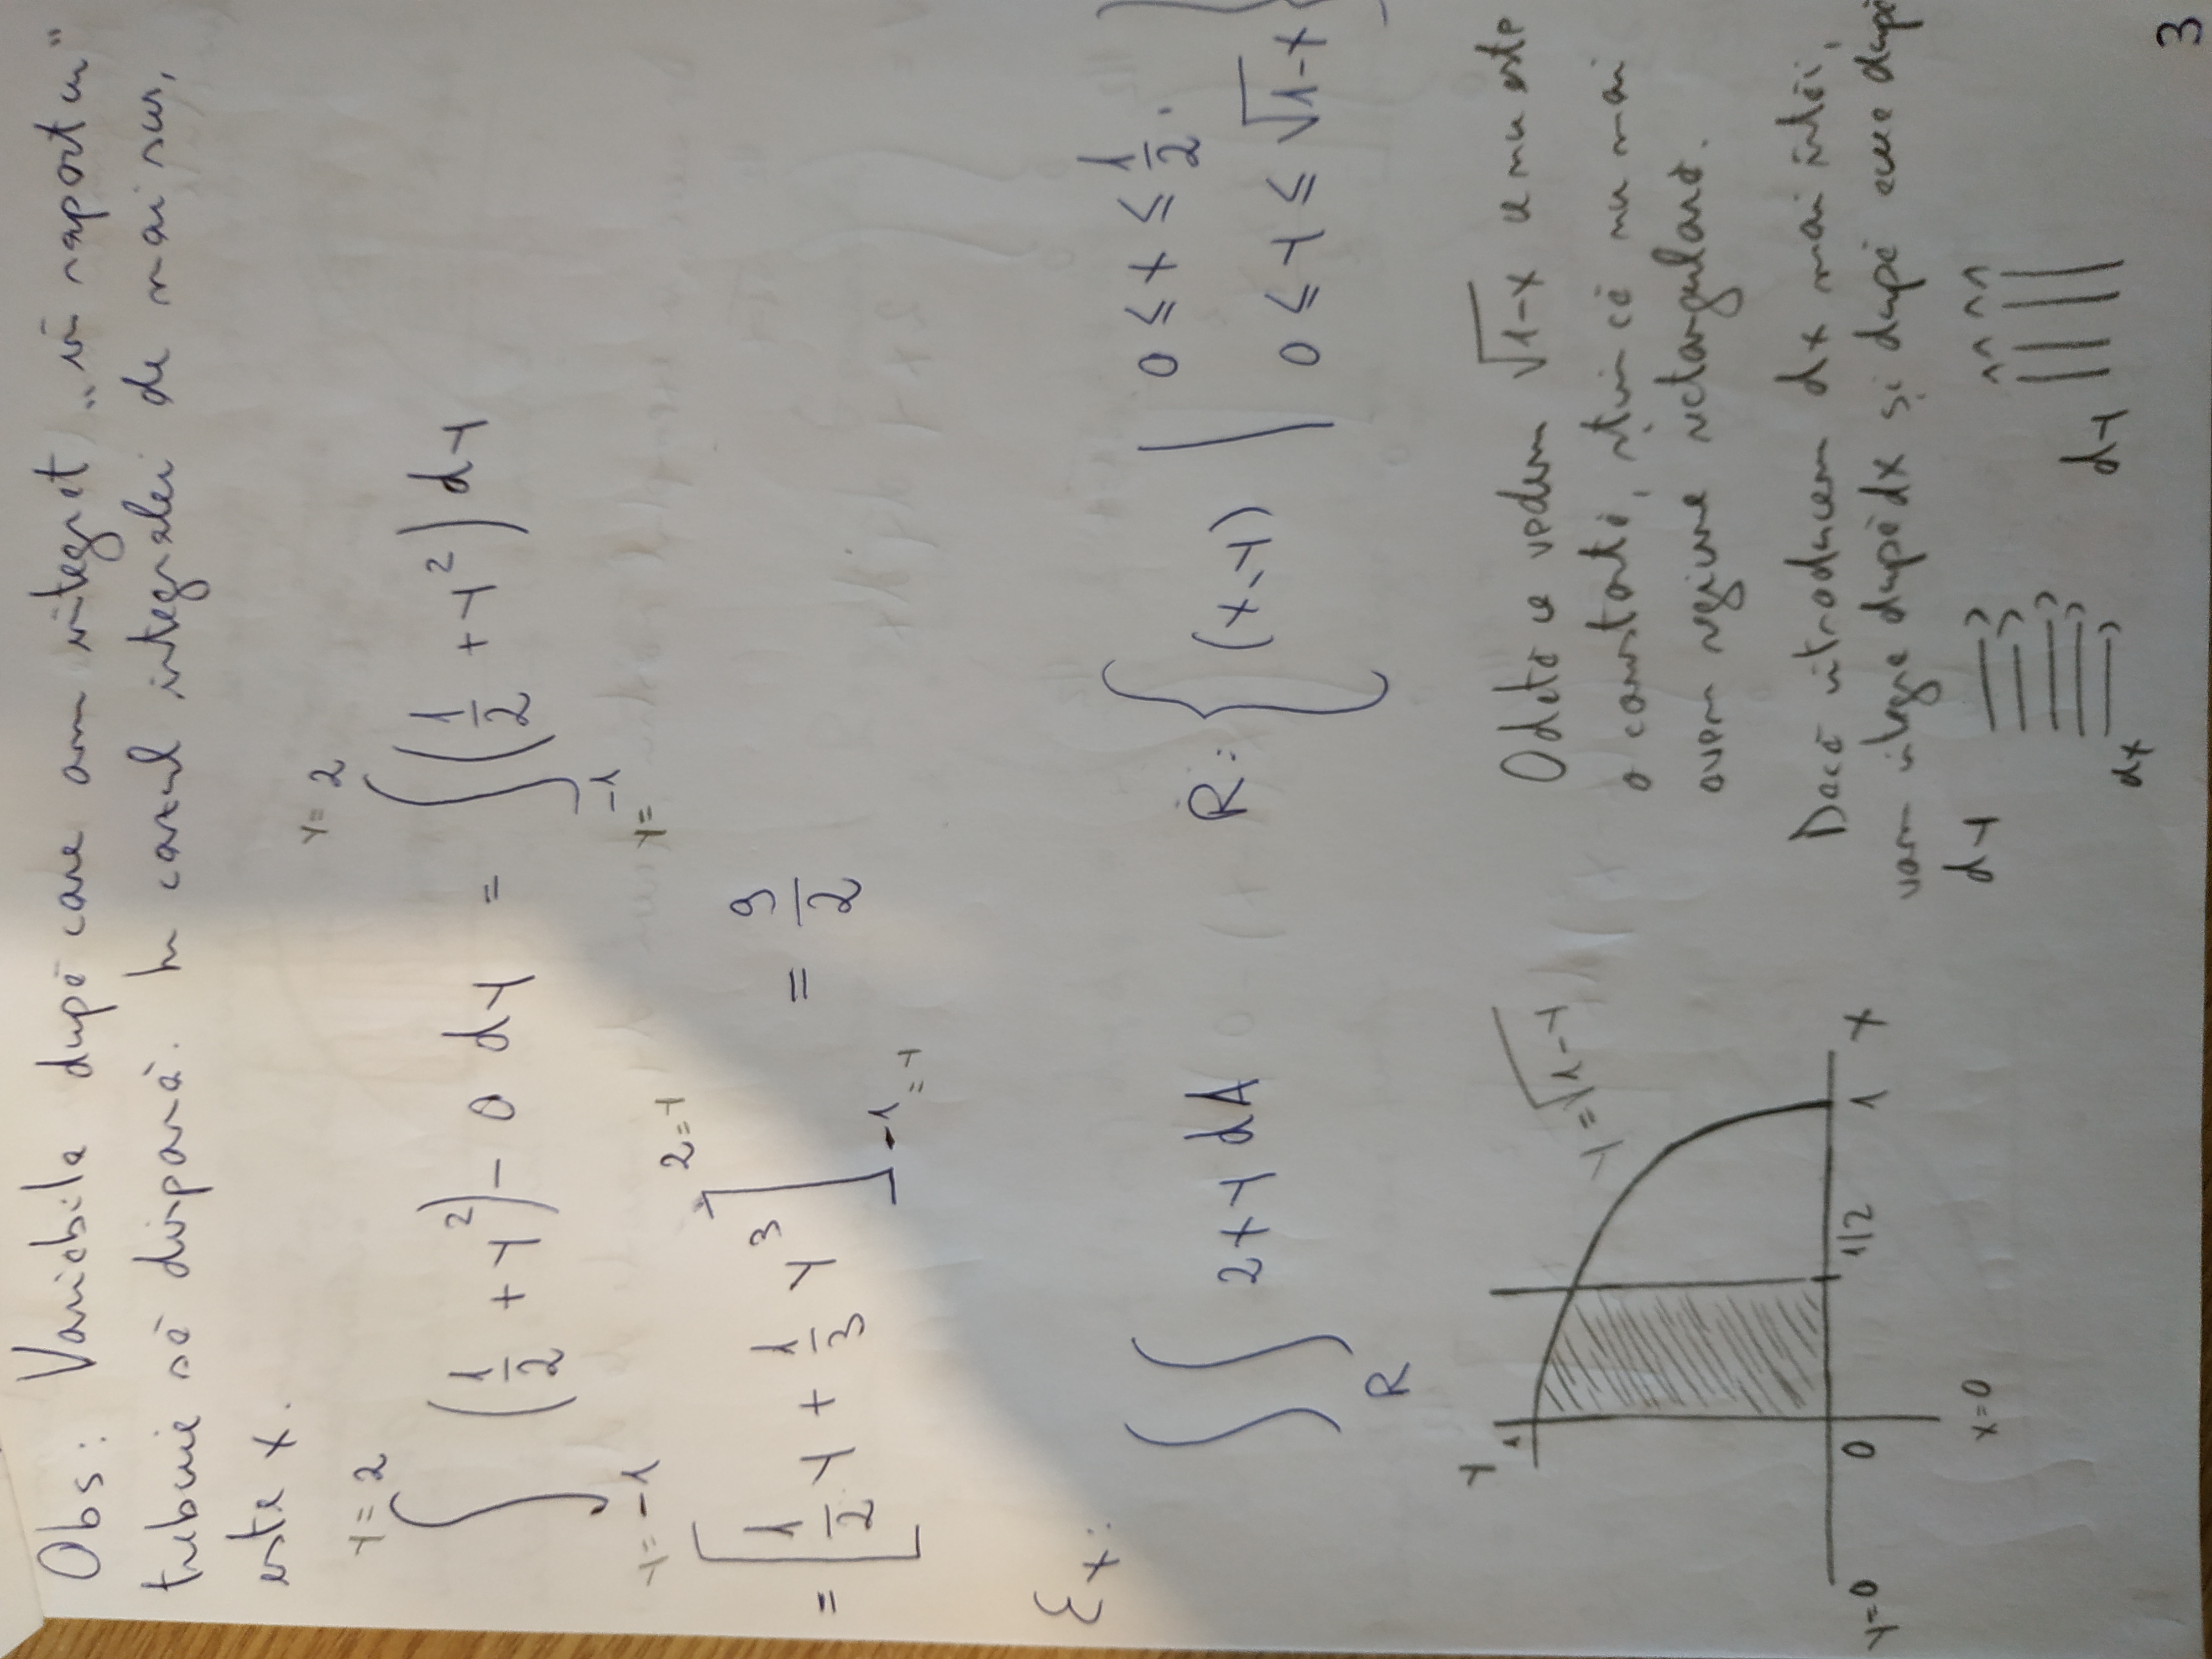 Obs: Variabila după care am integrat „în raport cu"
trebuie să dispară. În cazul integralei de mai sus,
este x.
∫_{y=-1}^{y=2} (1/2 + y²) - 0 dy = ∫_{y=-1}^{y=2} (1/2 + y²) dy
= [1/2 y + 1/3 y³]_{-1=y}^{2=y} = 9/2
Ex:
∫∫_R 2xy dA R: {(x,y) | 0 ≤ x ≤ 1/2. 0 ≤ y ≤ √1-x}
y
1
y=√1-y
y=0 0 1/2 1 x
x=0
Odată ce vedem √1-x ce nu este
o constantă, știm că nu mai
avem regiune rectangulară.
Dacă introducem dx mai întâi,
vom integra după dx și după aceea după
dy
dx
dy
3